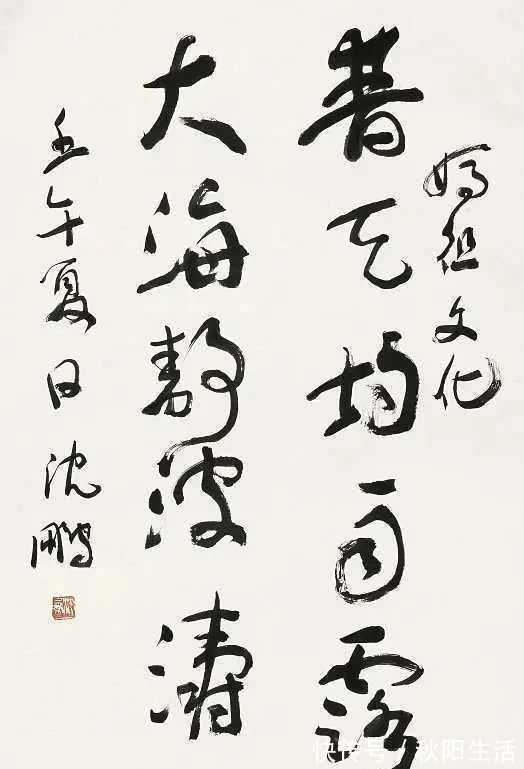 媽祖文化
普天均雨露
大海靜波濤
壬午夏日 沈鵬
快传号 / 秋阳生活